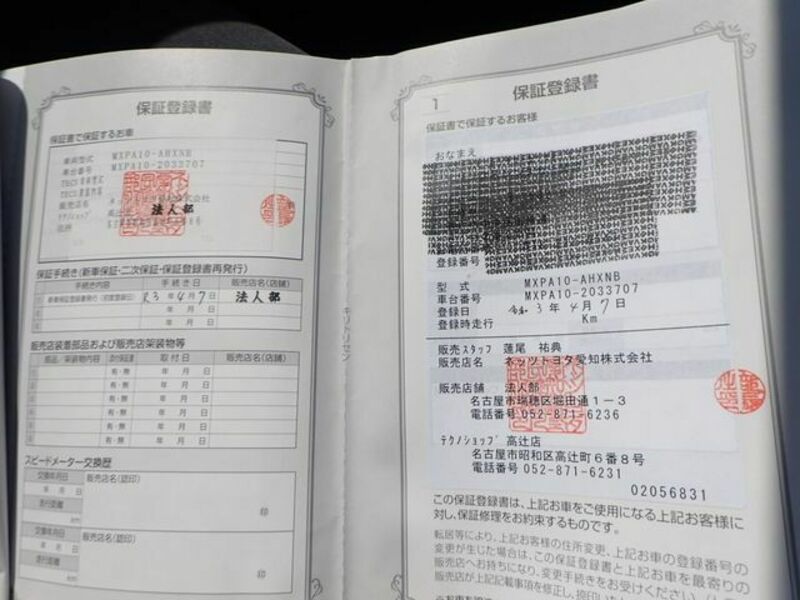 保証登録書
保証書で保証するお車
車両型式 MXPA10-AHXNB
車台番号 MXPA10-2033707
販売店名
テクノショップ 高辻店
法人部
住所
保証手続き(新車保証・二次保証・保証登録書再発行)
手続き内容 手続き日 販売店名(店舗)
新車保証登録書発行(初度登録日) R3年4月7日 法人部
年 月 日
年 月 日
販売店装着部品および販売店架装物等
部品/架装物内容 添付保証書 取付日 販売店名(店舗)
有・無 年 月 日
有・無 年 月 日
有・無 年 月 日
有・無 年 月 日
有・無 年 月 日
有・無 年 月 日
スピードメーター交換歴
交換年月日 販売店名(認印)
年 月 日
走行距離
km 印
交換年月日 販売店名(認印)
年 月 日
走行距離
km 印
キリトリセン
1
保証登録書
保証書で保証するお客様
おなまえ
登録番号
型式 MXPA10-AHXNB
車台番号 MXPA10-2033707
登録日 令和3年4月7日
登録時走行 Km
販売スタッフ 蓮尾 祐典
販売店名 ネッツトヨタ愛知株式会社
販売店舗 法人部
名古屋市瑞穂区堀田通1-3
電話番号 052-871-6236
テクノショップ 高辻店
名古屋市昭和区高辻町6番8号
電話番号 052-871-6231
02056831
この保証登録書は、上記お車をご使用になる上記お客様に
対し、保証修理をお約束するものです。
転居等により、上記お客様の住所変更、上記お車の登録番号の
変更が生じた場合は、この保証登録書と上記お車を最寄りの
販売店へお持ちになり、変更手続きをお受けください。
販売店が上記記載事項を修正し、捺印いた